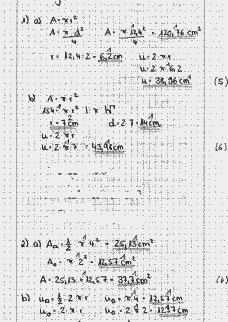 1) a) A = π r²
A = π d² / 4 A = π 12,4² / 4 = 120,76 cm²
r = 12,4 : 2 = 6,2 cm u = 2 · π · r
u = 2 · π · 6,2
u = 38,96 cm (5)
b) A = π r²
154 = π r² | : π √
r = 7 cm d = 2 · 7 = 14 cm
u = 2 · π · r
u = 2 · π · = 43,98 cm (6)
2) a) = ½ π 4² = 25,13 cm²
= π 2² = 12,57 cm²
A = 25,13 + 12,57 = 37,7 cm²
b) = ½ · 2 · π · r = π · 4 = 12,57 cm
= 2 · π · r = 2 · π · 2 = 12,57 cm